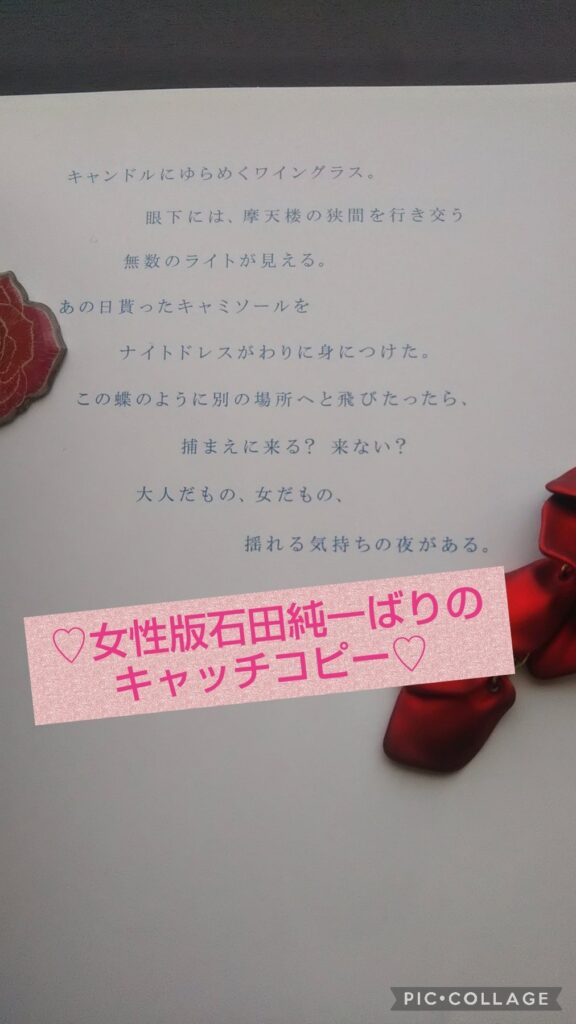 キャンドルにゆらめくワイングラス。
眼下には、摩天楼の狭間を行き交う
無数のライトが見える。
あの日貰ったキャミソールを
ナイトドレスがわりに身につけた。
この蝶のように別の場所へと飛びたったら、
捕まえに来る? 来ない?
大人だもの、女だもの、
揺れる気持ちの夜がある。
♡女性版石田純一ばりの
キャッチコピー♡
PIC•COLLAGE